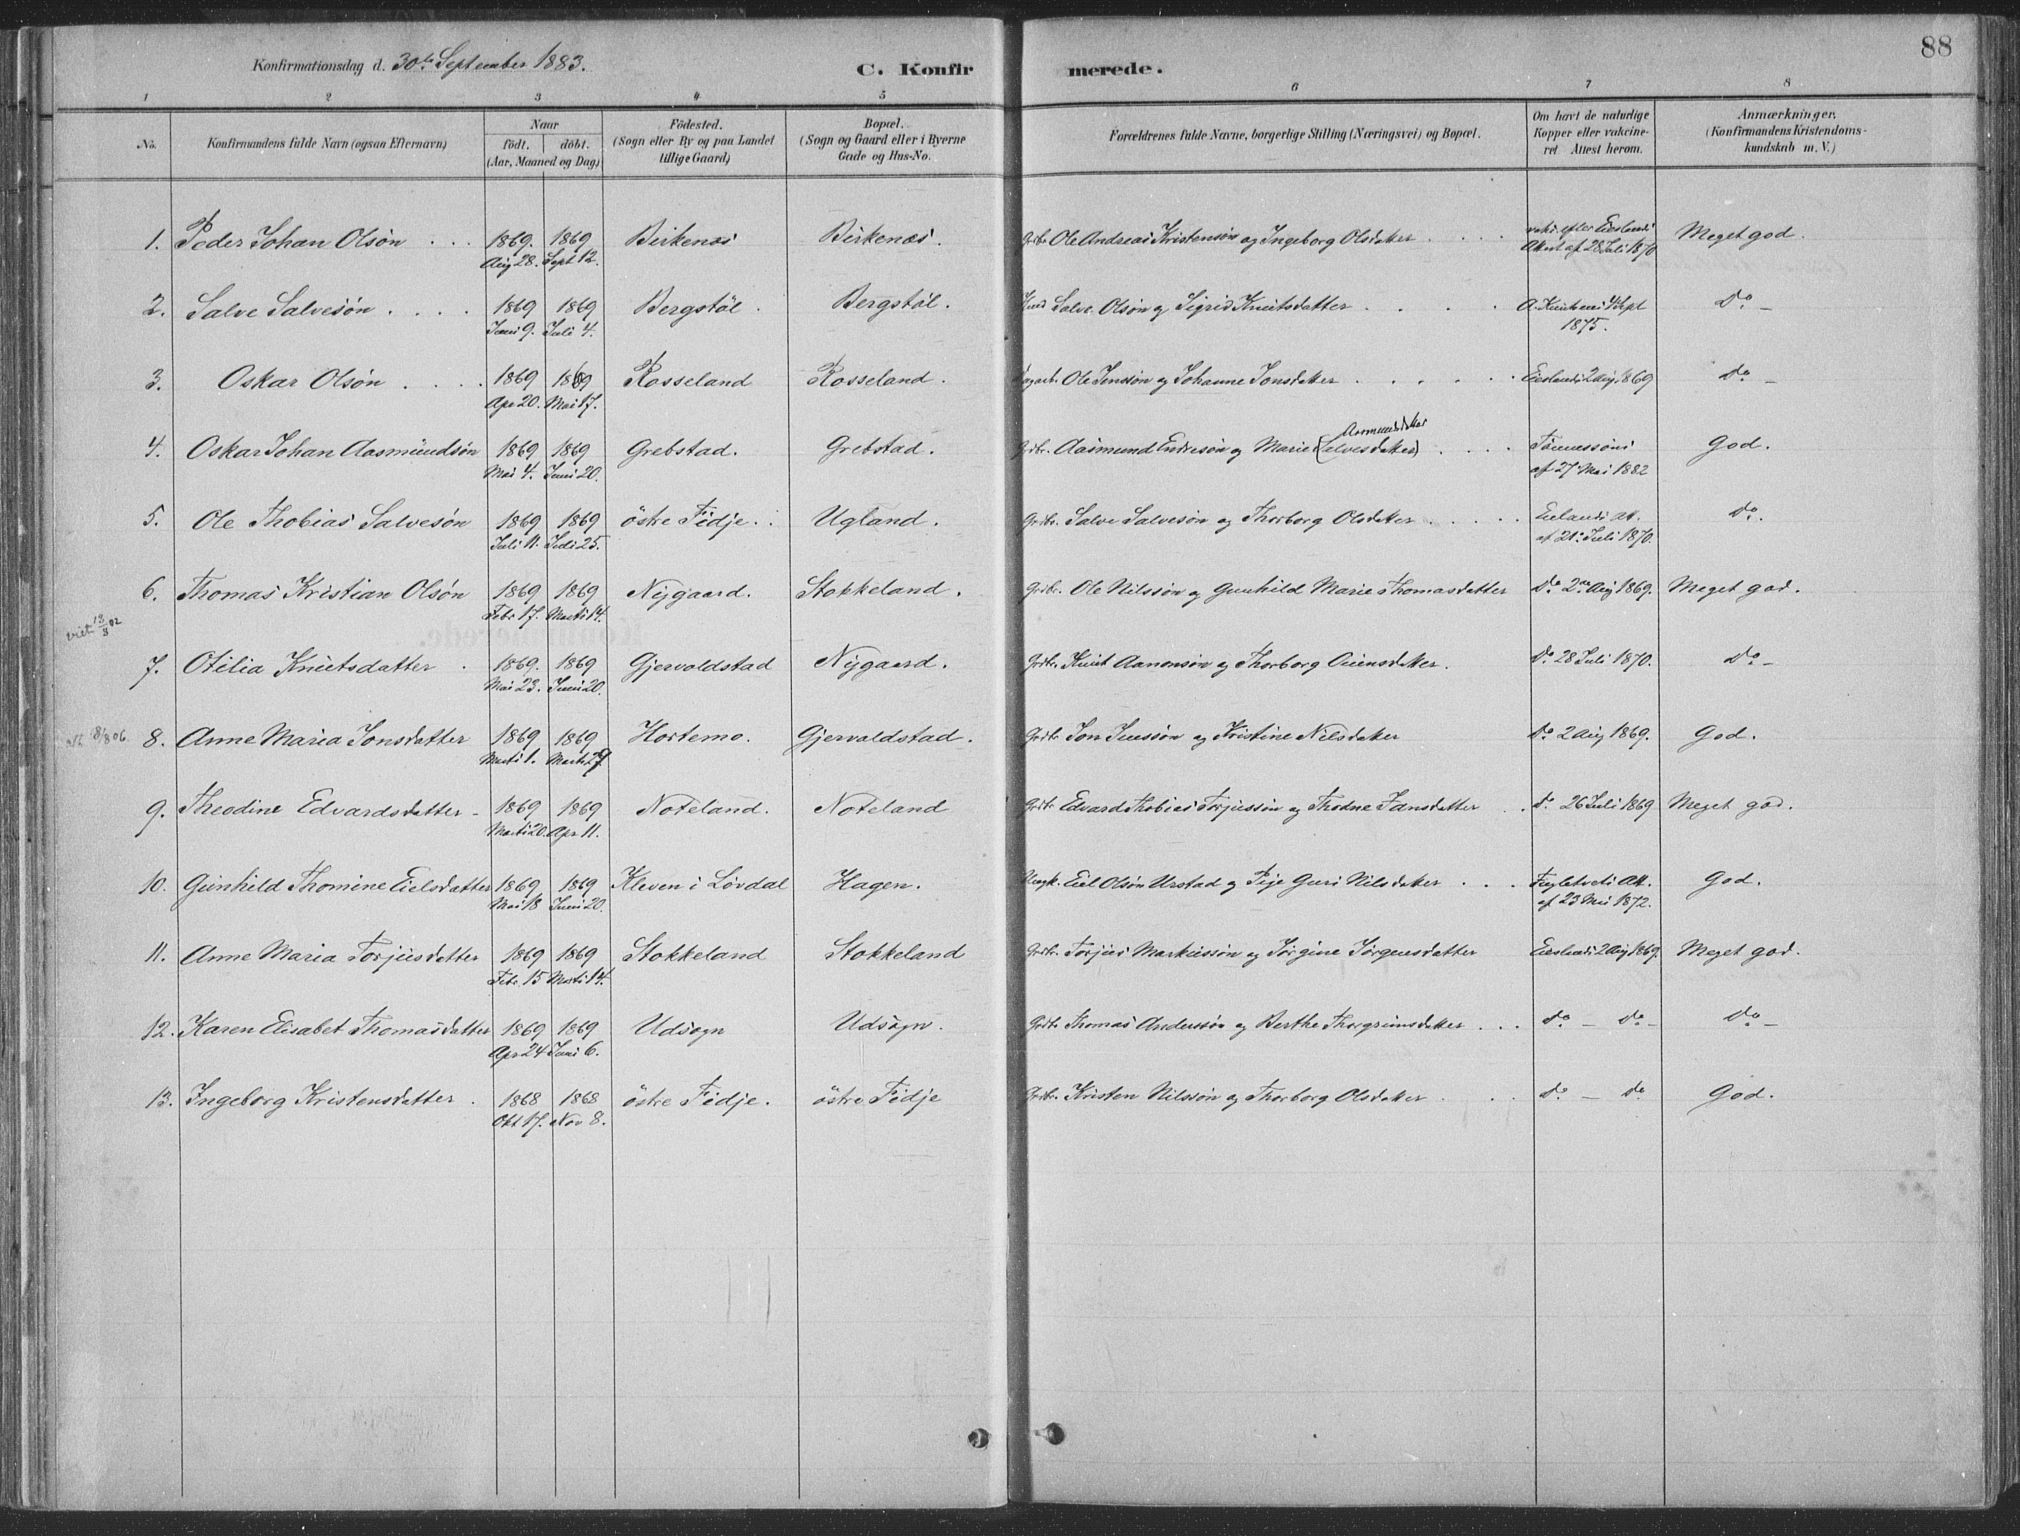 88
Konfirmationsdag d. 30te September 1883.
C. Konfirmerede.
1 2 3 4 5 6 7 8
No.
Konfirmandens fulde Navn (ogsaa Efternavn)
Naar
födt. döbt.
(Aar, Maaned og Dag)
Födested.
(Sogn eller By og paa Landet
tillige Gaard)
Bopæl.
(Sogn og Gaard eller i Byerne
Gade og Hus-No.
Forældrenes fulde Navne, borgerlige Stilling (Næringsvei) og Bopæl.
Om havt de naturlige
Kopper eller vakcine-
ret Attest herom.
Anmærkninger.
(Konfirmandens Kristendoms-
kundskab m. V.)
1. Peder Johan Olsön 1869. 1869 Birkenæs Birkenæs. Grbr. Ole Andreas Kristensön og Ingeborg Olsdatter efter Eieslands Meget god.
Aug 28. Sept 12. Attest af 28 Juli 1870
2. Salve Salvesön 1869 1869 Bergstöl. Bergstöl. Salve Olsön og Sigrid Knutsdatter 4 Sept Do
Juni 9. Juli 4. 1875.
3. Oskar Olsön 1869 1869 Rosseland Rosseland. Ole Jenssön og Johanne Jonsdatter Eieslands 2 Aug 1869 Do
Apr 20. Mai 17.
Aasmundsdatter
4. Oskar Johan Aasmundsön 1869 1869 Grebstad. Grebstad. Grbr. Aasmund Endresön og Marie (Salvesdatter) Tönnessöns God.
Mai 4. Juni 20. af 27 Mai 1882
5. Ole Thobias Salvesön 1869 1869 östre Fidje. Ugland. Grbr. Salve Salvesön og Thorborg Olsdatter Eielands Att. Do.
Juli 11. Juli 25. af 21. Juli 1870.
6. Thomas Kristian Olsön 1869 1869 Nygaard. Stokkeland. Grbr. Ole Nilssön og Gunhild Marie Thomasdatter Do 2den Aug 1869. Meget god.
Febr 17. Marts 14.
viet 13/3 02
7. Otilia Knutsdatter 1869. 1869 Gjervoldstad Nygaard. Grbr. Knut Aanonsön og Thorborg Aunsdatter. Do 28 Juli 1870. Do
Mai 23. Juni 20.
8/8 06.
8. Anne Maria Jonsdatter 1869 1869 Hortemo. Gjervoldstad. Grbr. Jon Jenssön og Kristine Nilsdatter Do 2 Aug 1869. God.
Marts 1. Marts 29
9. Theodine Edvardsdatter 1869 1869 Noteland. Noteland Grbr. Edvard Thobias Torjussön og Thodne Jansdatter Do 26 Juli 1869 Meget god.
Marts 20. Apr 11.
10. Gunhild Thomine Eielsdatter 1869 1869 Kleven i Lövdal Hagen. Ungk. Eiel Olsön Urstad og Pige Guri Nilsdatter Fugletveits Att. God.
Mai 18 Juni 20. af 23 Mai 1872.
11. Anne Maria Torjusdatter 1869 1869 Stokkeland Stokkeland Grbr. Torjus Markussön og Jörgine Jörgensdatter Eieslands 2 Aug 1869. Meget god.
Febr. 15 Marts 14.
12. Karen Elisabet Thomasdatter 1869 1869 Udsogn Udsogn. Grbr. Thomas Anderssön og Berthe Thorgrimsdatter Do Do Do
Apr 24 Juni 6.
13. Ingeborg Kristensdatter 1868 1868 östre Fidje. östre Fidje Grbr. Kristen Nilssön og Thorborg Olsdatter Do Do God.
Okt 17. Nov 8.